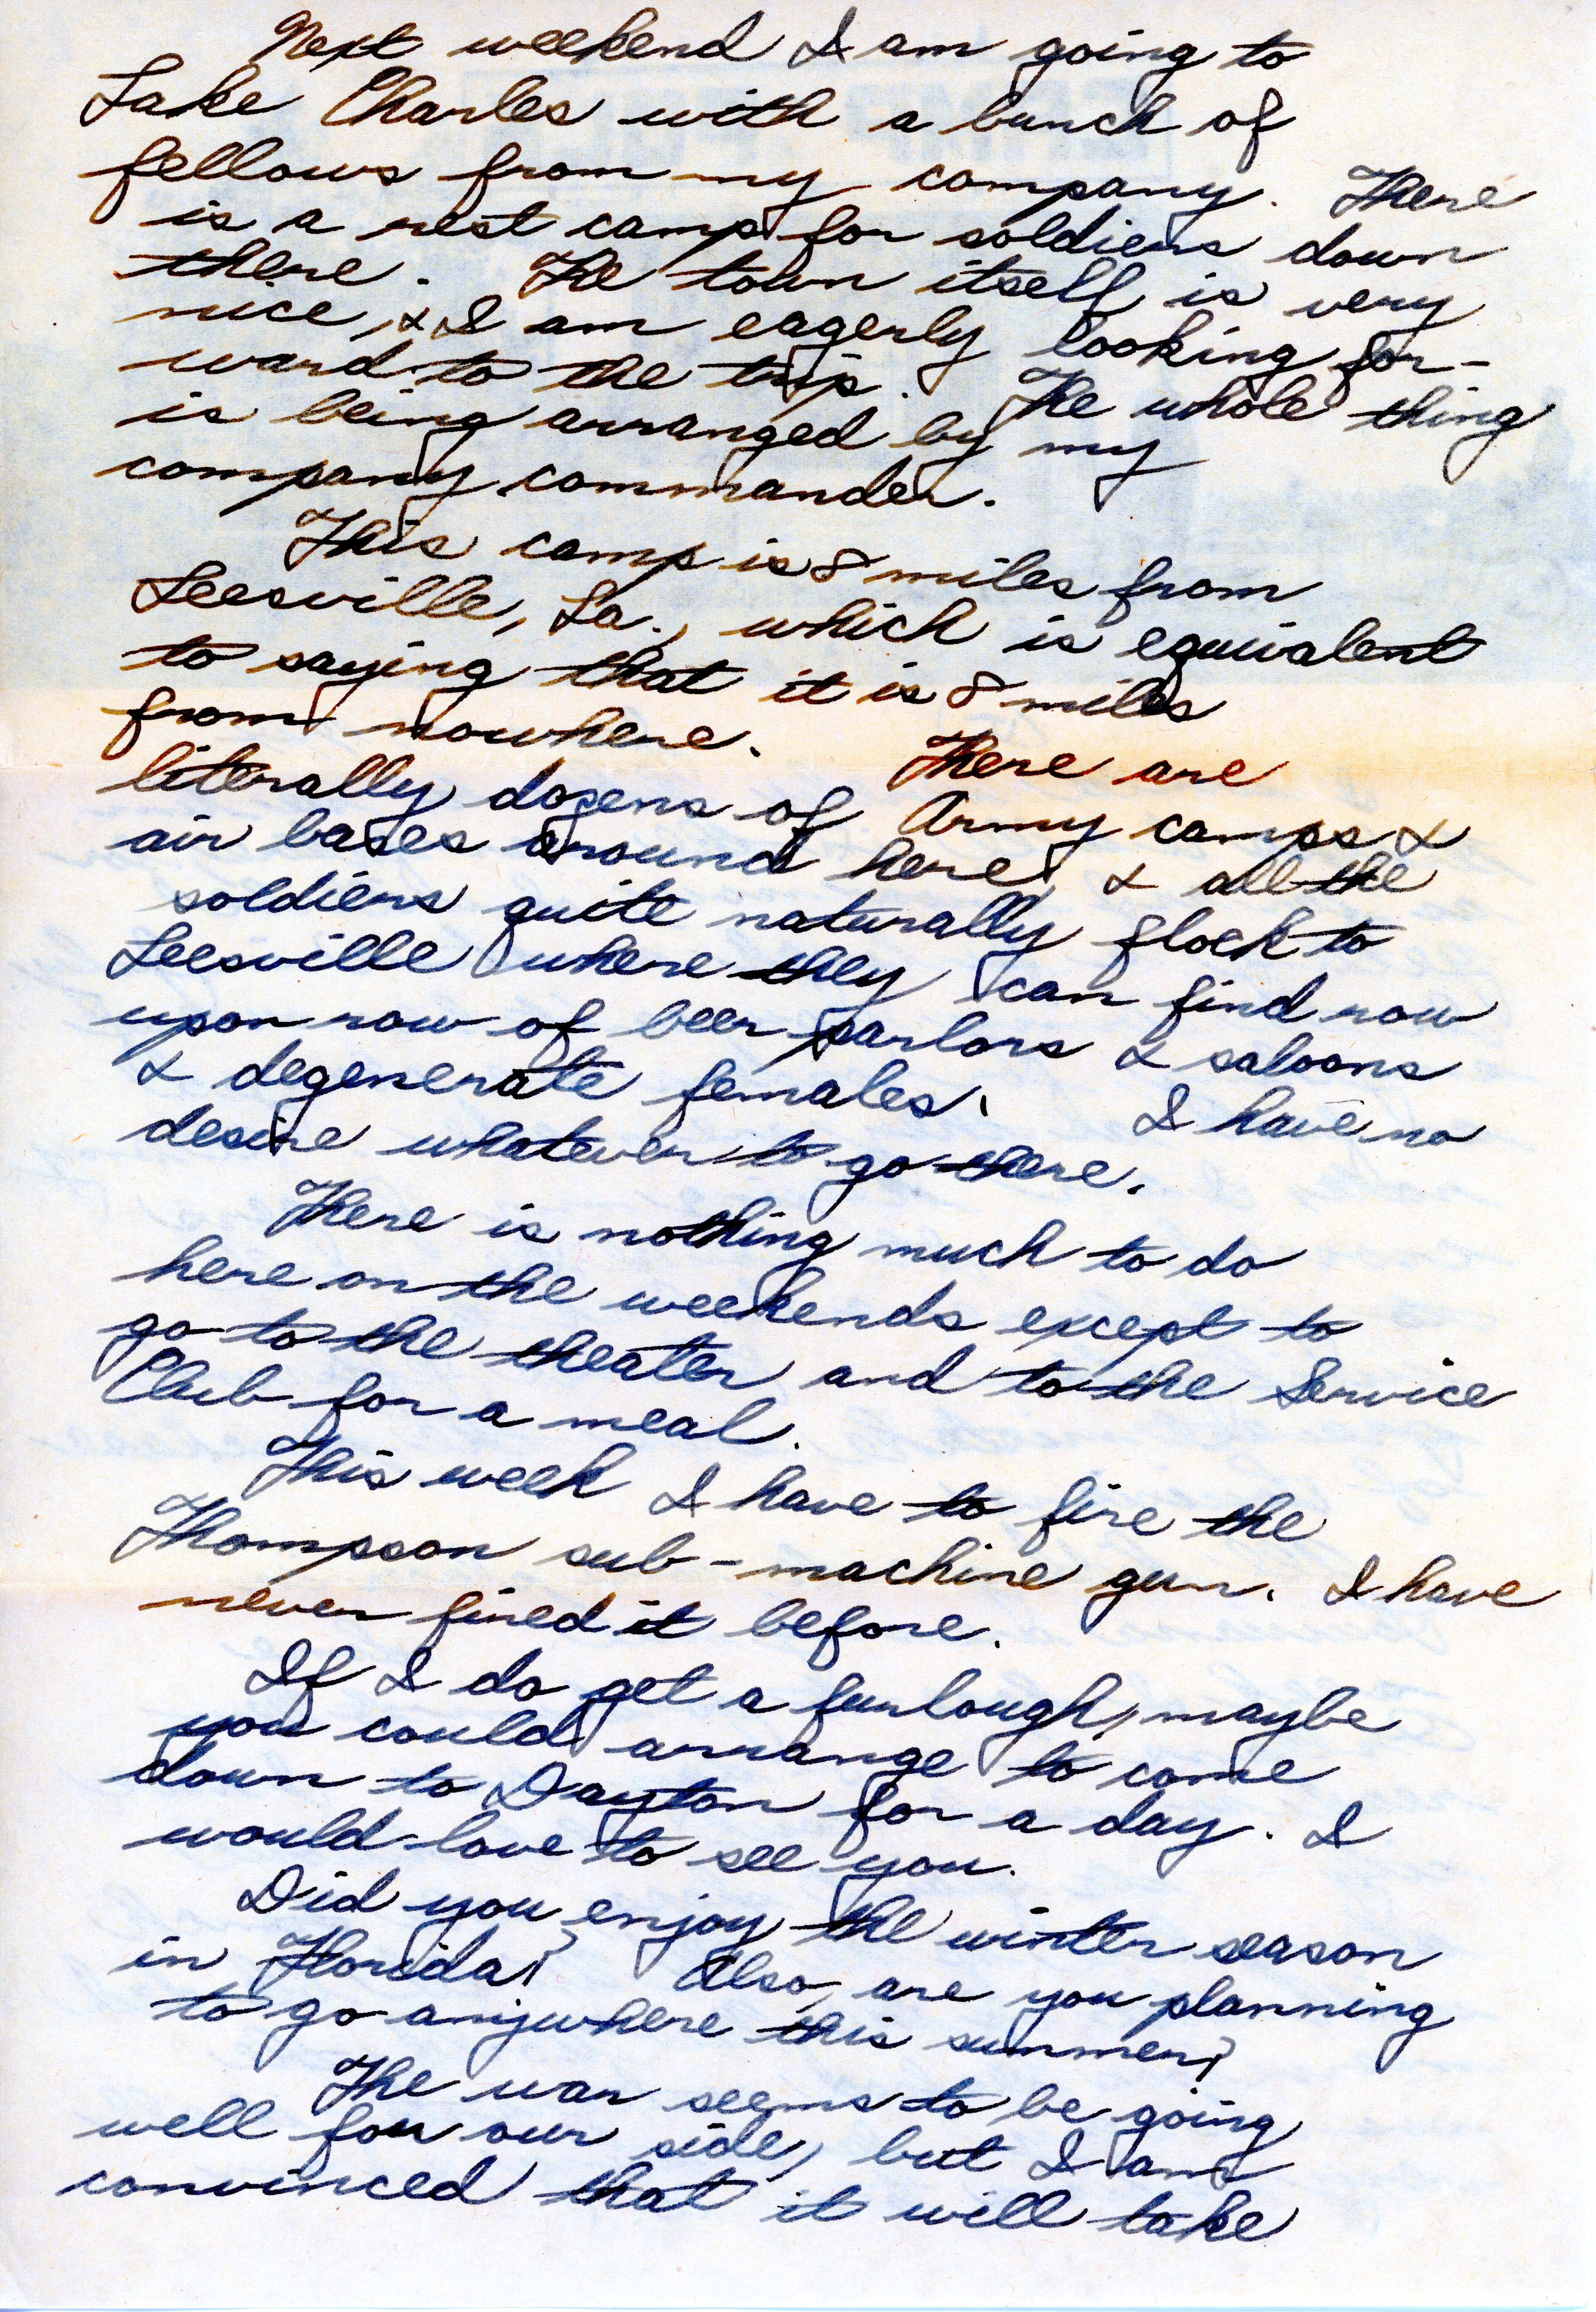 Next weekend I am going to
Lake Charles with a bunch of
fellows from my company. There
is a rest camp for soldiers down
there. The town itself is very
nice, & I am eagerly looking for-
ward to the trip. The whole thing
is being arranged by my
company commander.
This camp is 8 miles from
Leesville, La., which is equivalent
to saying that it is 8 miles
from nowhere. There are
literally dozens of Army camps &
air bases around here, & all the
soldiers quite naturally flock to
Leesville where they can find row
upon row of beer parlors & saloons
& degenerate females. I have no
desire whatever to go there.
There is nothing much to do
here on the weekends except to
go to the theater and to the Service
Club for a meal.
This week I have to fire the
Thompson sub-machine gun. I have
never fired it before.
If I do get a furlough, maybe
you could arrange to come
down to Dayton for a day. I
would love to see you.
Did you enjoy the winter season
in Florida? Also, are you planning
to go anywhere this summer?
The war seems to be going
well for our side, but I am
convinced that it will take